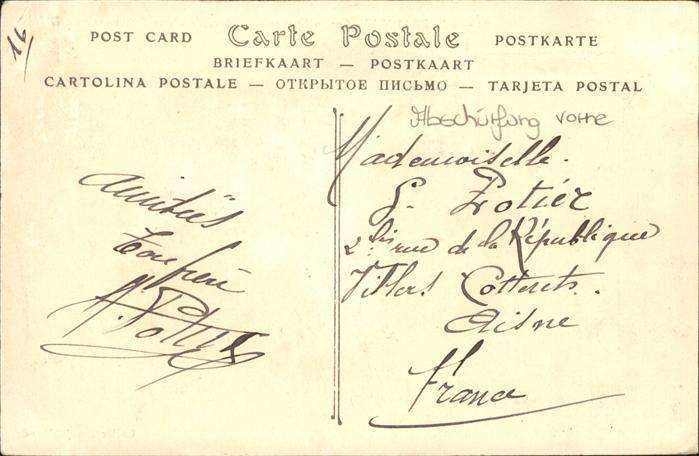 16
POST CARD Carte Postale POSTKARTE
BRIEFKAART — POSTKAART
CARTOLINA POSTALE — ОТКРЫТОЕ ПИСЬМО — TARJETA POSTAL
Abschürfung vorne
Amitiés
ton frère
A. Potier
Mademoiselle.
G. Potier
2 bis rue de la République
Villers Cotterets.
Aisne
France